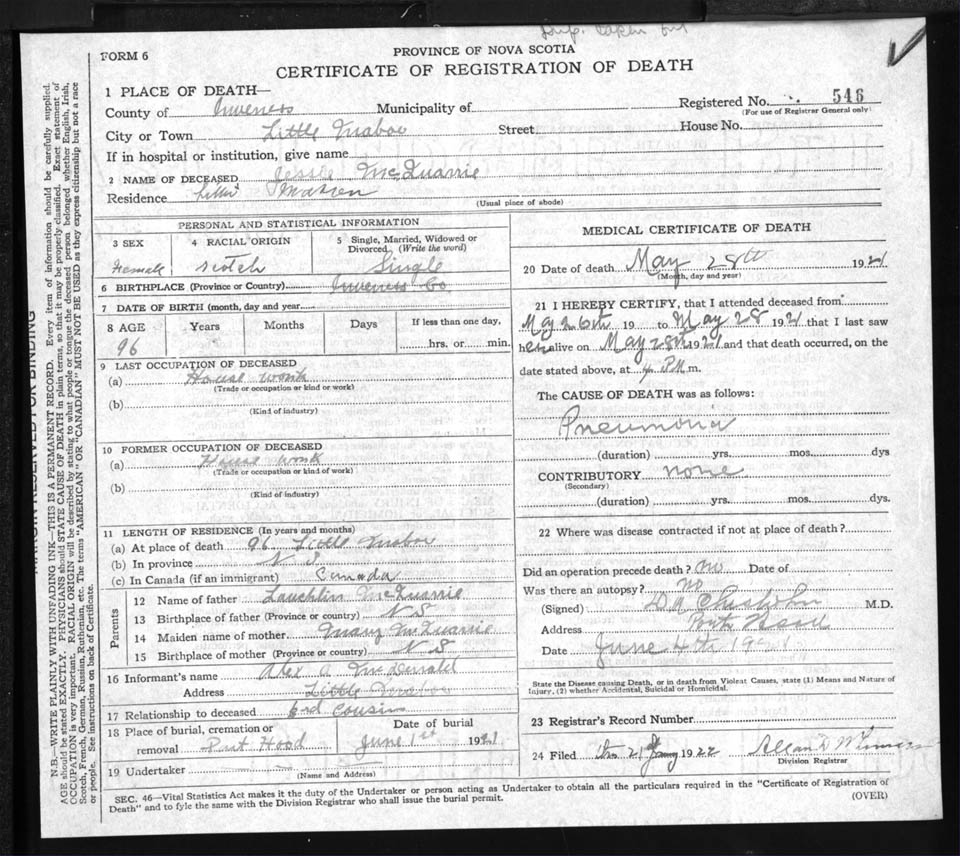 FORM 6
PROVINCE OF NOVA SCOTIA
CERTIFICATE OF REGISTRATION OF DEATH
1 PLACE OF DEATH—
County of Inverness Municipality of Registered No. 546
(For use of Registrar General only)
City or Town Little Mabou Street House No.
If in hospital or institution, give name
2 NAME OF DECEASED Jessie McQuarrie
Residence Little
(Usual place of abode)
PERSONAL AND STATISTICAL INFORMATION
3 SEX 4 RACIAL ORIGIN 5 Single, Married, Widowed or
Divorced (Write the word)
Female Scotch Single
6 BIRTHPLACE (Province or Country) Inverness Co
7 DATE OF BIRTH (month, day and year
8 AGE Years Months Days If less than one day,
96 hrs. or min.
9 LAST OCCUPATION OF DECEASED
(a) House work
(Trade or occupation or kind or work)
(b)
(Kind of industry)
10 FORMER OCCUPATION OF DECEASED
(a) House work
(Trade or occupation or kind of work)
(b)
(Kind of industry)
11 LENGTH OF RESIDENCE (In years and months)
(a) At place of death 96 Little Mabou
(b) In province N S
(c) In Canada (if an immigrant) Canada
Parents
12 Name of father Lauchlin McQuarrie
13 Birthplace of father (Province or country) N S
14 Maiden name of mother Mary McQuarrie
15 Birthplace of mother (Province or country) N S
16 Informant's name Alex A
Address Little Mabou
17 Relationship to deceased 3rd Cousin
18 Place of burial, cremation or Date of burial
removal Port Hood June 1st 1921
19 Undertaker
(Name and Address)
MEDICAL CERTIFICATE OF DEATH
20 Date of death May 28th 1921
(Month, day and year)
21 I HEREBY CERTIFY, that I attended deceased from
May 26th 19 to May 28 1921 that I last saw
her alive on May 28th 1921 and that death occurred, on the
date stated above, at 4 PM m.
The CAUSE OF DEATH was as follows:
Pneumonia
(duration) yrs. mos. dys
CONTRIBUTORY none
(Secondary)
(duration) yrs. mos. dys.
22 Where was disease contracted if not at place of death?
Did an operation precede death? no Date of
Was there an autopsy? no
(Signed) D A Chisholm M.D.
Address Port Hood
Date June 4th 1921
State the Disease causing Death, or in death from Violent Causes, state (1) Means and Nature of
Injury, (2) whether Accidental, Suicidal or Homicidal.
23 Registrar's Record Number
24 Filed 1922 Allan D
Division Registrar
SEC. 46—Vital Statistics Act makes it the duty of the Undertaker or person acting as Undertaker to obtain all the particulars required in the "Certificate of Registration of
Death" and to fyle the same with the Division Registrar who shall issue the burial permit.
(OVER)
MARGIN RESERVED FOR BINDING
N.B.—WRITE PLAINLY WITH UNFADING INK—THIS IS A PERMANENT RECORD. Every item of information should be carefully supplied.
AGE should be stated EXACTLY. PHYSICIANS should STATE CAUSE OF DEATH in plain terms, so that it may be properly classified. Exact statement of
OCCUPATION is very important. RACIAL ORIGIN will be described by stating to what people or tongue the deceased person belonged whether English, Irish,
Scotch, French, German, Russian, Ruthenian, etc. The terms "AMERICAN" OR "CANADIAN" MUST NOT BE USED as they express citizenship but not a race
or people. See instructions on back of Certificate.